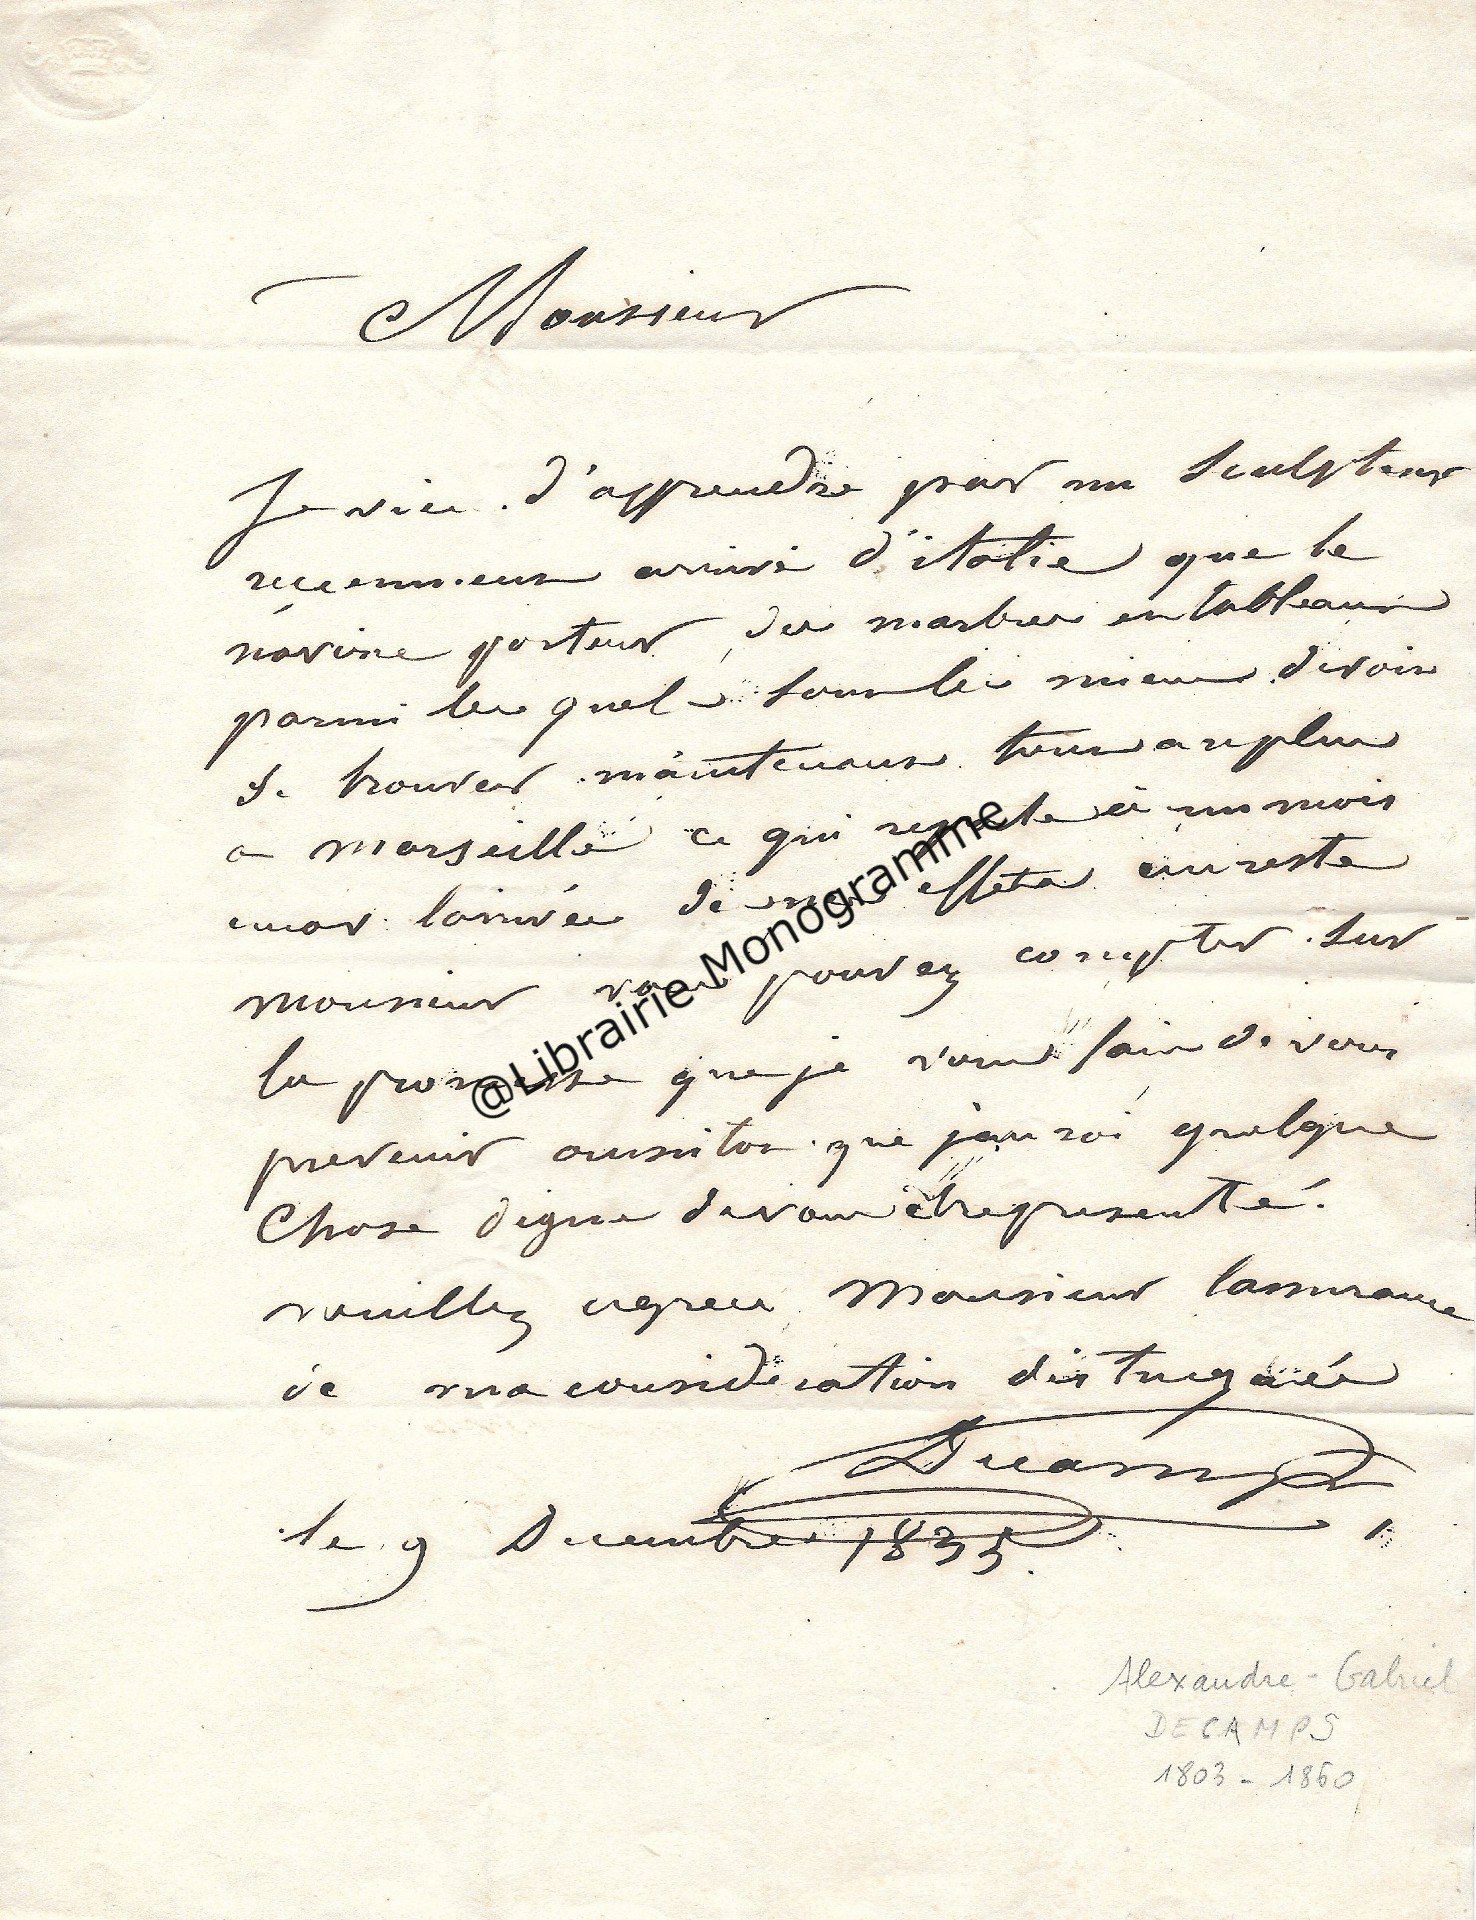 Monsieur
Je vien d'apprendre par un sculpteur
recemmens arrivé d'italie que le
navire porteur des marbres en tableaux
parmi les quels sont les miens devoir
se trouver maintenans tous au plus
a Marseille ce qui reporte à un mois
encor l'arrivée de mes effets au reste
monsieur vous pouvez compter sur
la promesse que je vous fais de vous
prevenir aussitos que jaurai quelque
Chose digne de vous etre presenté.
veuillez agreer Monsieur lassurance
de ma consideration distinguée
Decamps
le 9 Decembre 1835.
@Librairie Monogramme
Alexandre-Gabriel
DECAMPS
1803 - 1860